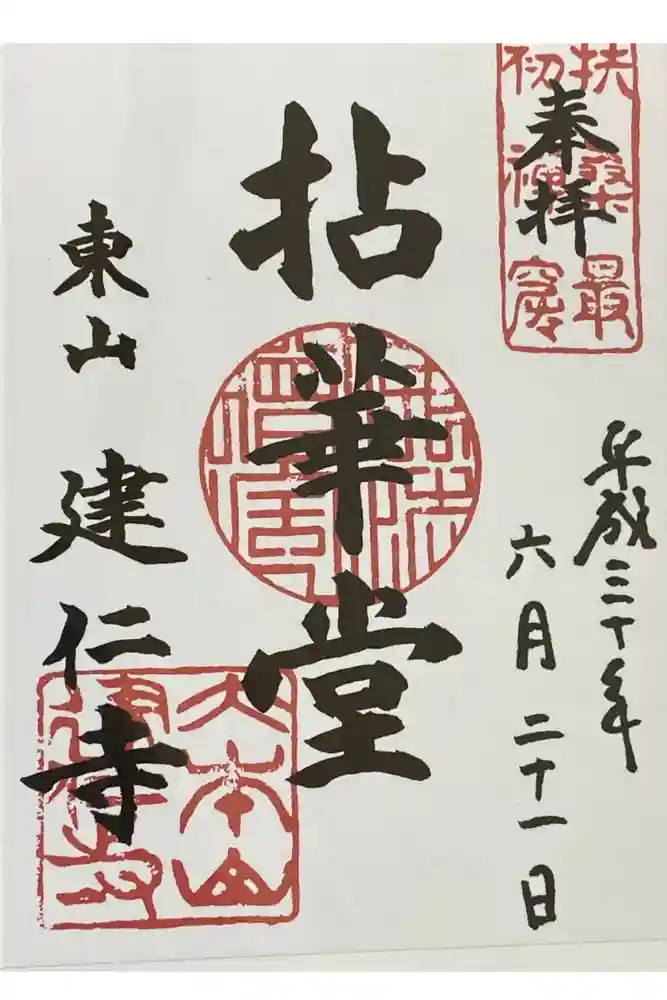 奉拝
扶桑最
初禅窟
平成三十年
六月二十一日
拈華堂
東山 建仁寺
大本山
建仁寺